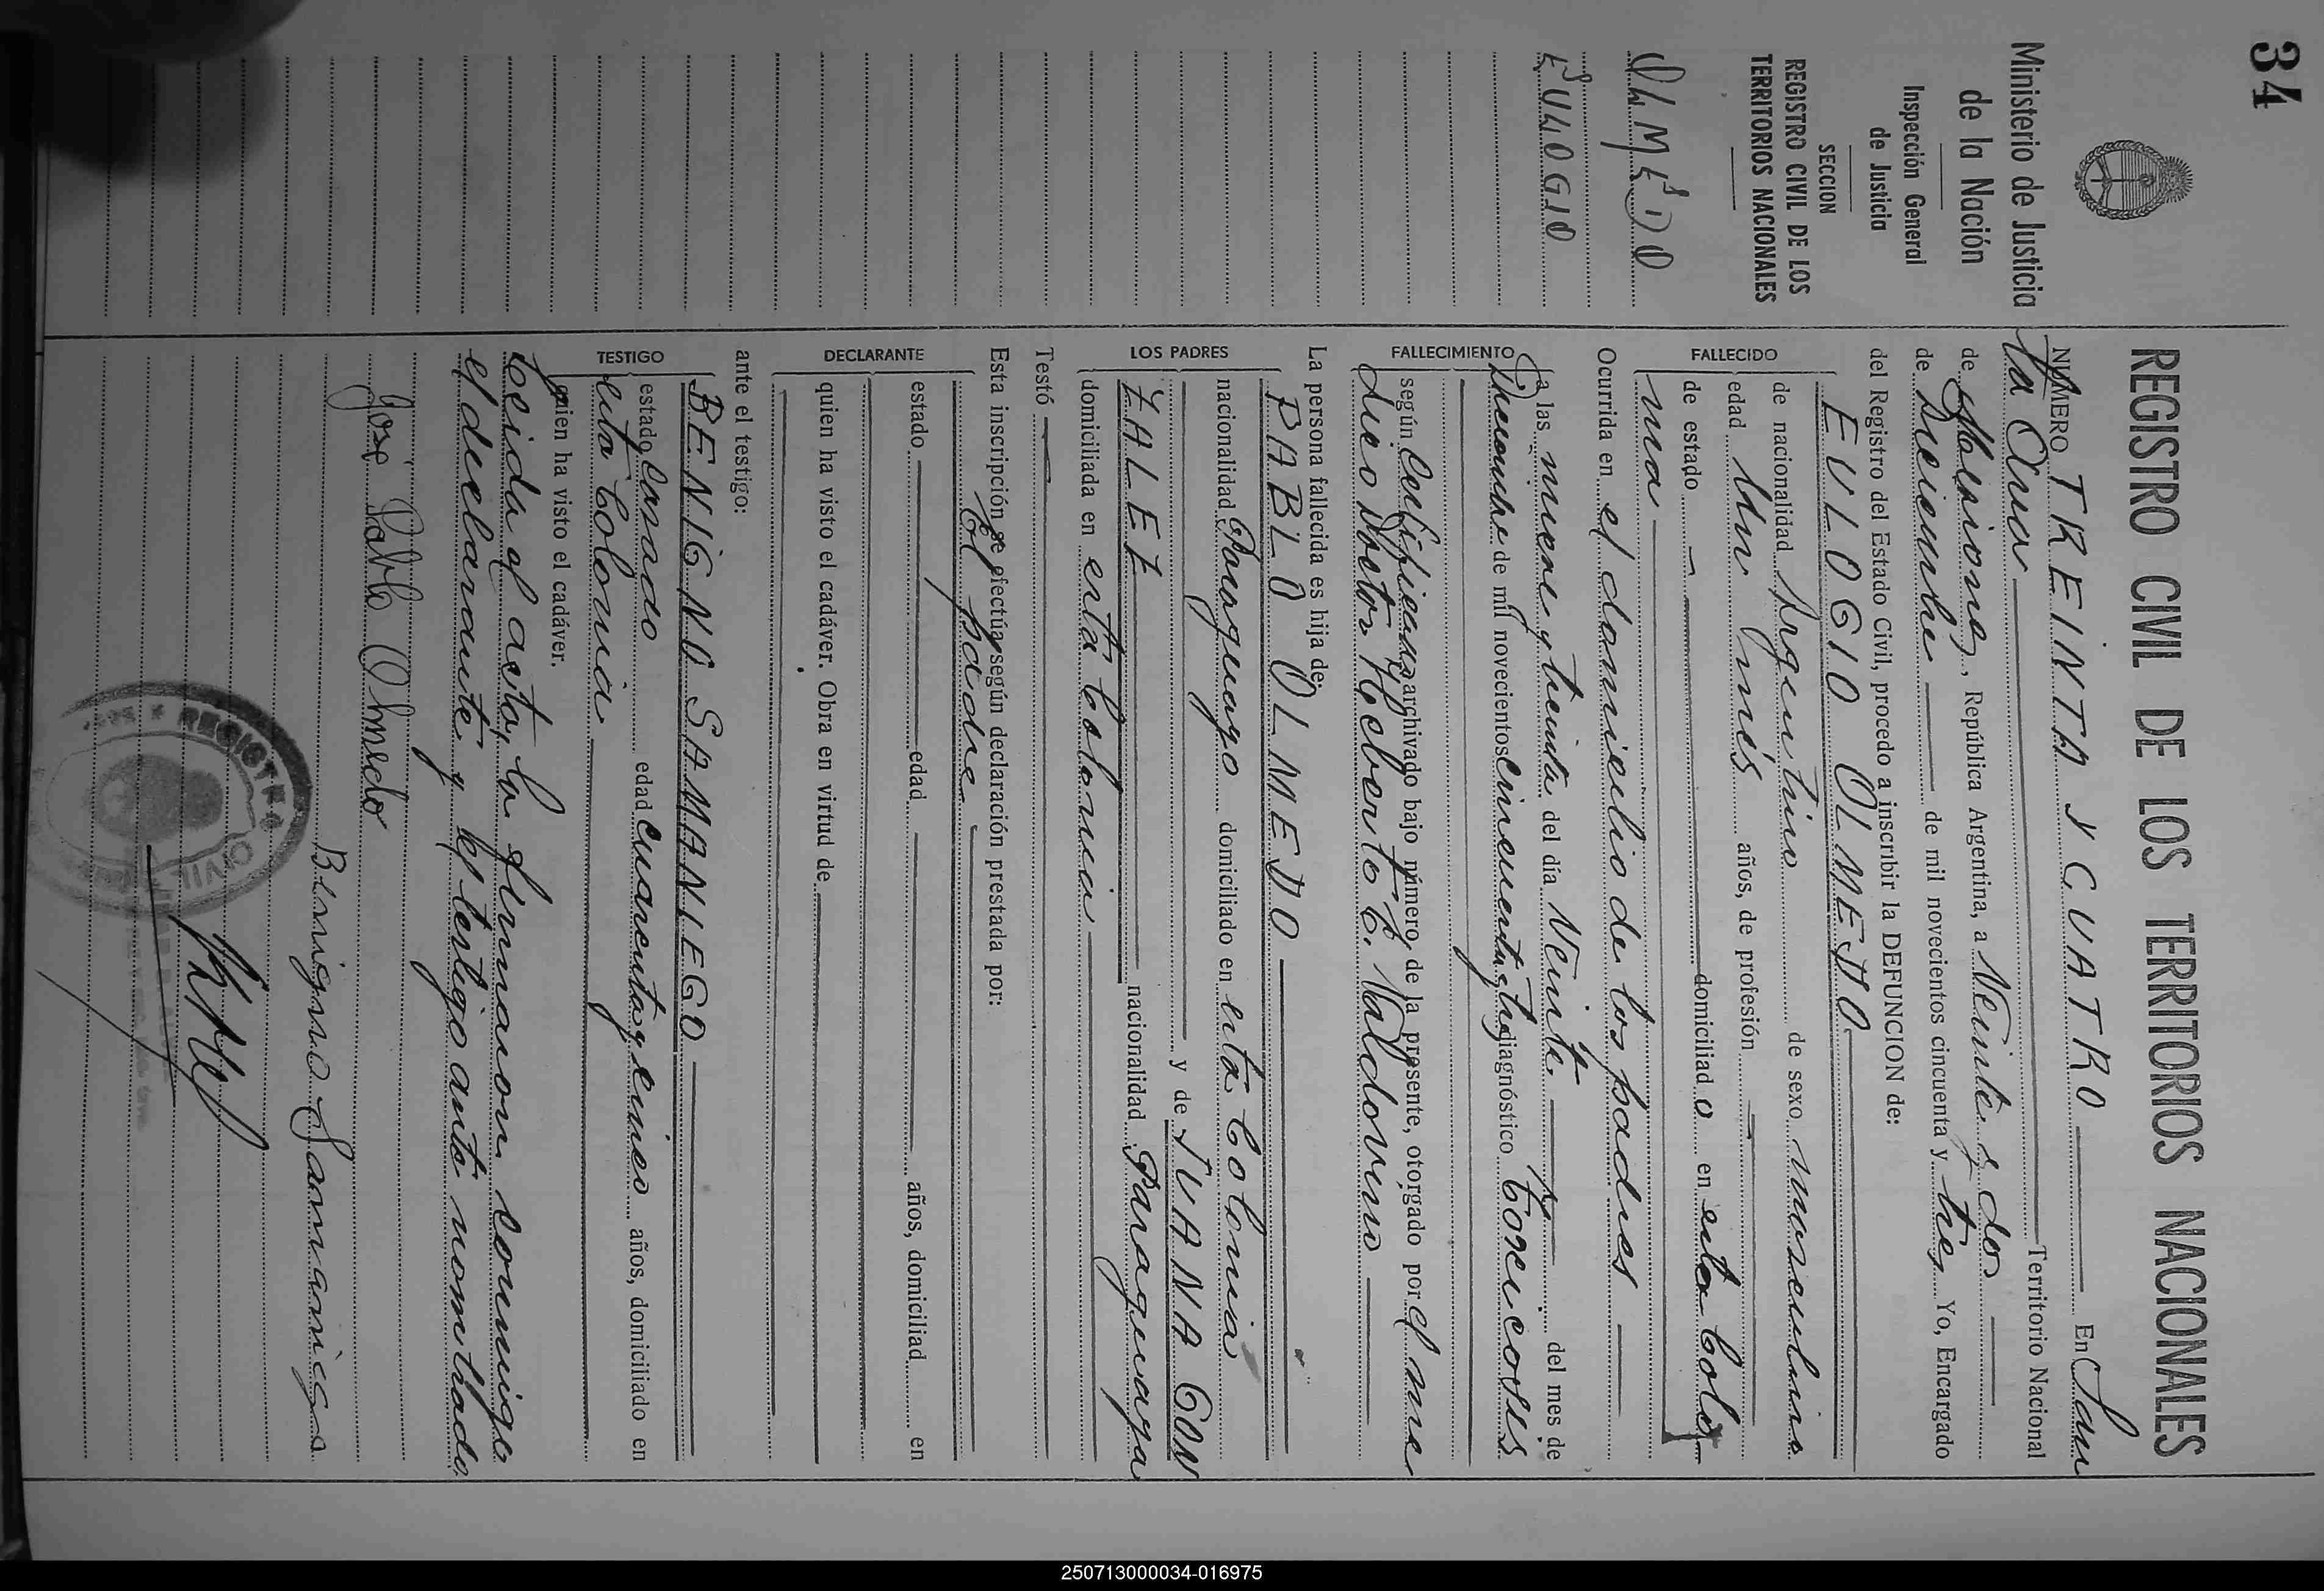 34
Ministerio de Justicia
de la Nación
Inspección General
de Justicia
SECCION
REGISTRO CIVIL DE LOS
TERRITORIOS NACIONALES
OLMEDO
EULOGIO
REGISTRO CIVIL DE LOS TERRITORIOS NACIONALES
NUMERO TREINTA Y CUATRO En San
ta Ana Territorio Nacional
de Misiones, República Argentina, a Veinte y dos
de Diciembre de mil novecientos cincuenta y tres Yo, Encargado
del Registro del Estado Civil, procedo a inscribir la DEFUNCION de:
FALLECIDO
EULOGIO OLMEDO
de nacionalidad Argentino de sexo masculino
edad Un mes años, de profesión
de estado domiciliado en esta Colo
nia
Ocurrida en el domicilio de los padres
FALLECIMIENTO
a las nueve y treinta del día Veinte del mes de
Diciembre de mil novecientos cincuenta y tres diagnóstico Toxicosis
según Certificado archivado bajo número, de la presente, otorgado por el mé
dico Doctor Heberto C. Valdovino
La persona fallecida es hija de:
LOS PADRES
PABLO OLMEDO
nacionalidad Paraguayo domiciliado en esta Colonia
y de JUANA GON
ZALEZ nacionalidad Paraguaya
domiciliada en esta Colonia
Testó
Esta inscripción se efectúa según declaración prestada por:
DECLARANTE
El padre
estado edad años, domiciliad en
quien ha visto el cadáver. Obra en virtud de
ante el testigo:
TESTIGO
BENIGNO SAMANIEGO
estado Casado edad cuarenta y cinco años, domiciliado en
esta Colonia
quien ha visto el cadáver.
Leida el acta, la firmaron conmigo
el declarante y el testigo ante nombrado
José Pablo Olmedo
Benigno Samaniego
REGISTRO CIVIL
250713000034-016975